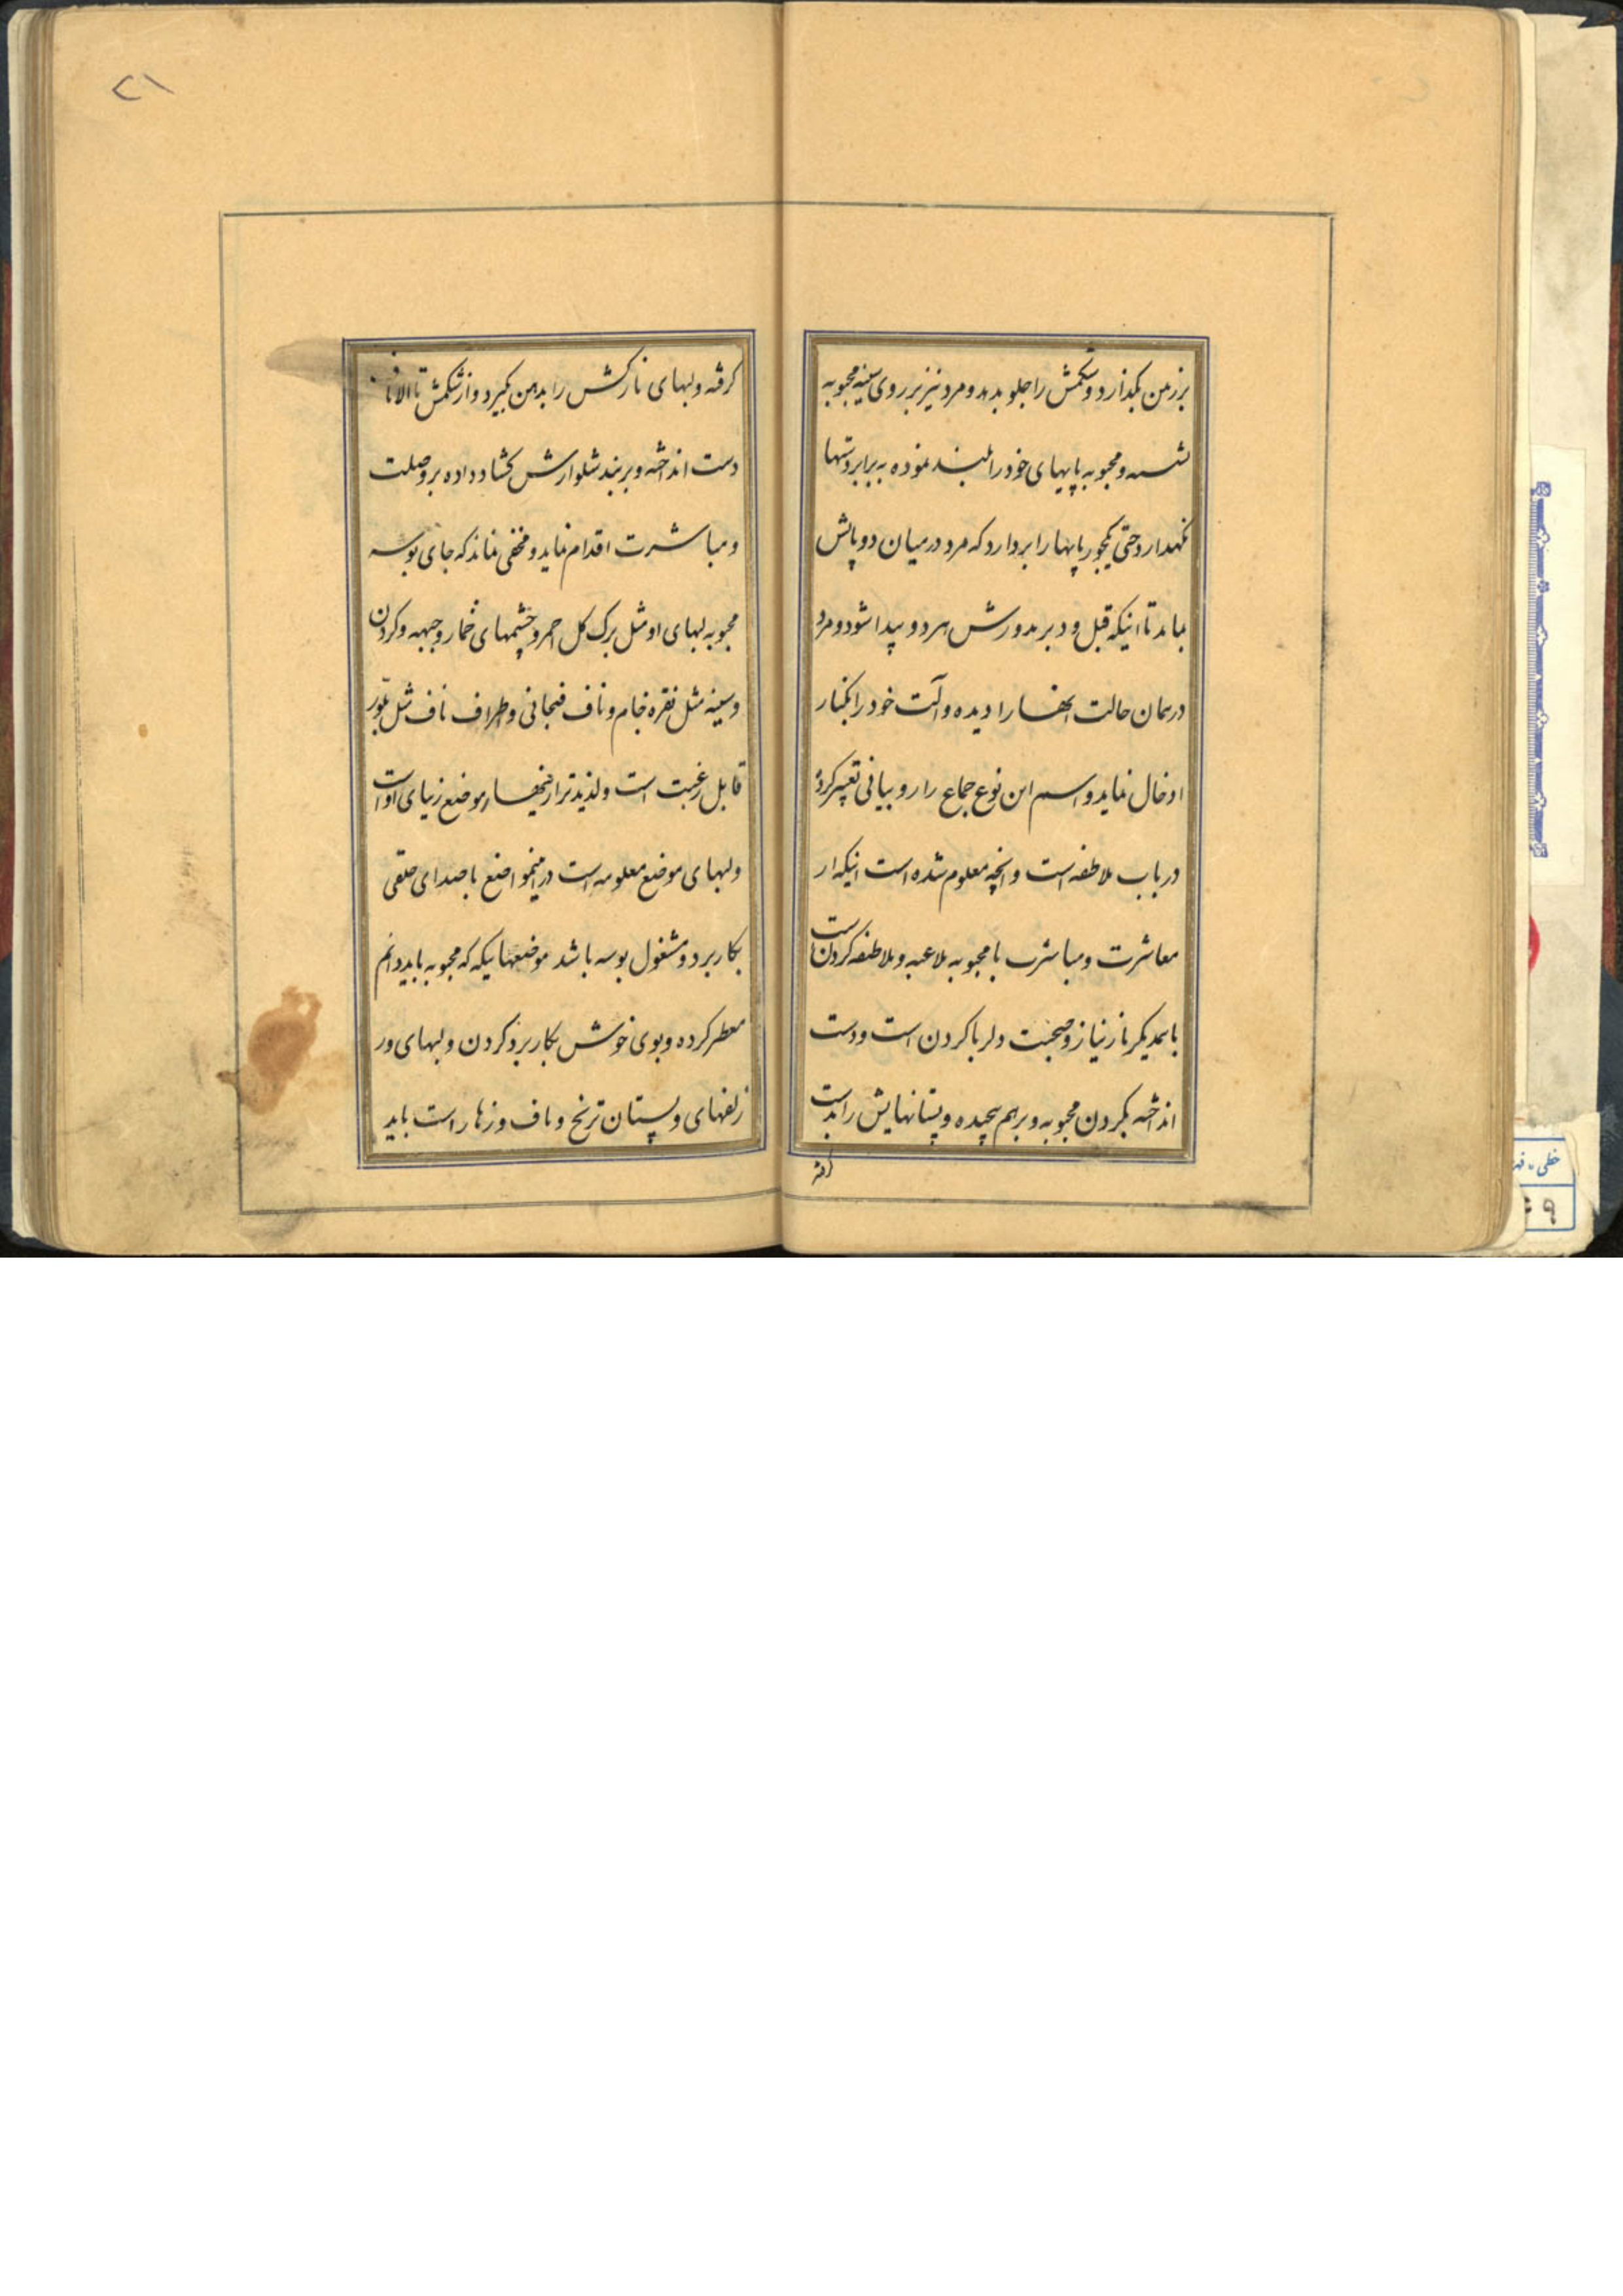 بزرمن بکذارد وشکمش را جلو بدهد و مرد نیز بر روی سینه محبوبه
نشسه و محبوبه پاپهای خود را بلند نموده به برابر دستها
نکهدارد حتی یکجور پاپها را بردارد که مرد در میان دو پاش
بماند تا اینکه قبل و دبر مدورش هر دو پیدا شود و مرد
در همان حالت انها را دیده و آلت خود را بکنار
ادخال نماید و اسم این نوع جماع را رو بیانی تعبیر کرده
در باب ملاطفه است و انچه معلوم شده است اینکه از
معاشرت و مباشرت با محبوبه ملاعبه و ملاطفه کردن است
با همدیکر ناز نیاز و صحبت دلربا کردن است و دست
انداخته بکردن محبوبه و برهم پیچیده و پستانهایش را بدست
کرفته
۲۱
کرفته و لبهای نازکش را بدهن بکیرد و از شکمش تا
دست انداخته و بر بند شلوارش کشاد داده بر وصلت
و مباشرت اقدام نماید و مخفی نماند که جای بوسه
محبوبه لبهای او مثل برک کل احمر و چشمهای خمار و جبهه و کردن
و سینه مثل نقره خام و ناف فنجانی و اطراف ناف مثل بلّور
قابل رغبت است و لذیذتر از اینها موضع زیبای او است
و لبهای موضع معلومه است در اینمواضع با صدای حلقی
بکار برد و مشغول بوسه باشد موضعهائیکه که محبوبه باید دائم
معطر کرده و بوی خوش بکار برد کردن و لبهای و
زلفهای و پستان ترنج و ناف و زهار است باید
خطی
۹